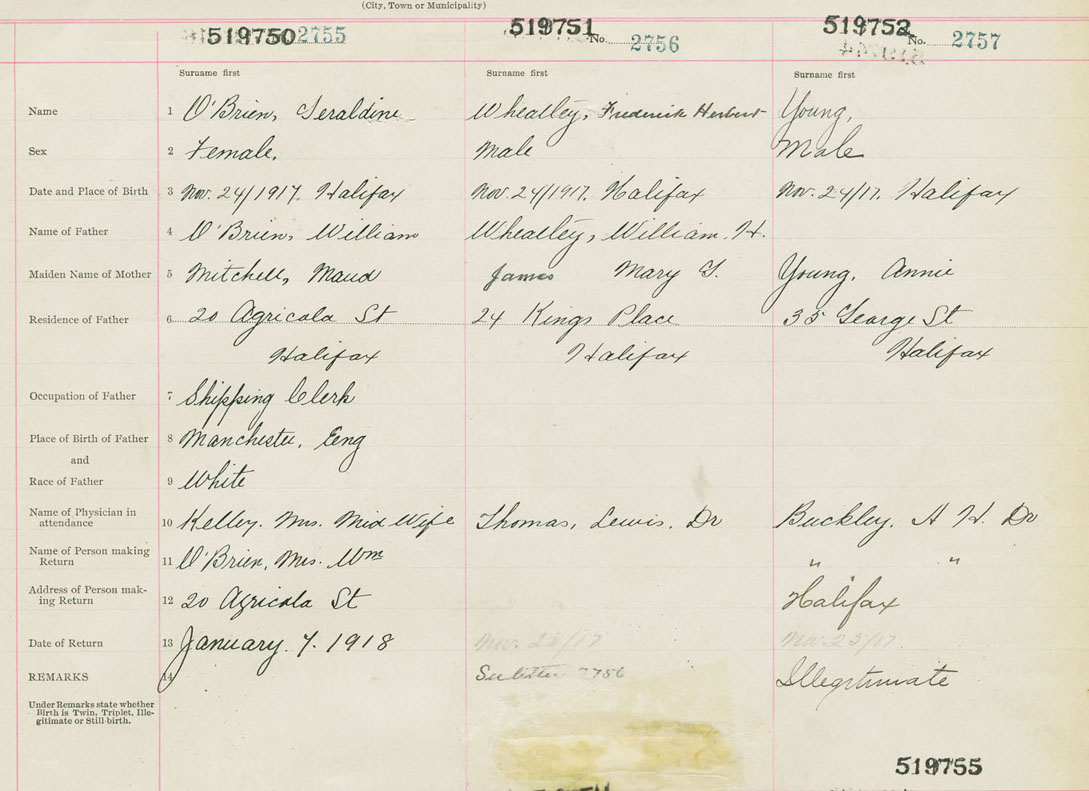 (City, Town or Municipality)
519750 2755 519751 No. 2756 519752 No. 2757
Surname first Surname first Surname first
Name 1 O'Brien, Geraldine Wheatley, Frederick Herbert Young,
Sex 2 Female. Male Male
Date and Place of Birth 3 Nov. 24/1917. Halifax Nov. 24/1917. Halifax Nov. 24/17. Halifax
Name of Father 4 O'Brien, William Wheatley, William. H.
Maiden Name of Mother 5 Mitchell, Maud James Mary G. Young, Annie
Residence of Father 6 20 Agricola St 24 Kings Place 35 George St
Halifax Halifax Halifax
Occupation of Father 7 Shipping Clerk
Place of Birth of Father 8 Manchester, Eng
and
Race of Father 9 White
Name of Physician in
attendance 10 Kelley. Mrs. Mid Wife Thomas, Lewis, Dr Buckley, A H. Dr
Name of Person making
Return 11 O'Brien, Mrs. Wm " "
Address of Person mak-
ing Return 12 20 Agricola St Halifax
Date of Return 13 January. 7. 1918 Nov. 28/17 Nov. 25/17.
REMARKS 14 See letter 2756 Illegitimate
Under Remarks state whether
Birth is Twin, Triplet, Ille-
gitimate or Still-birth.
519755